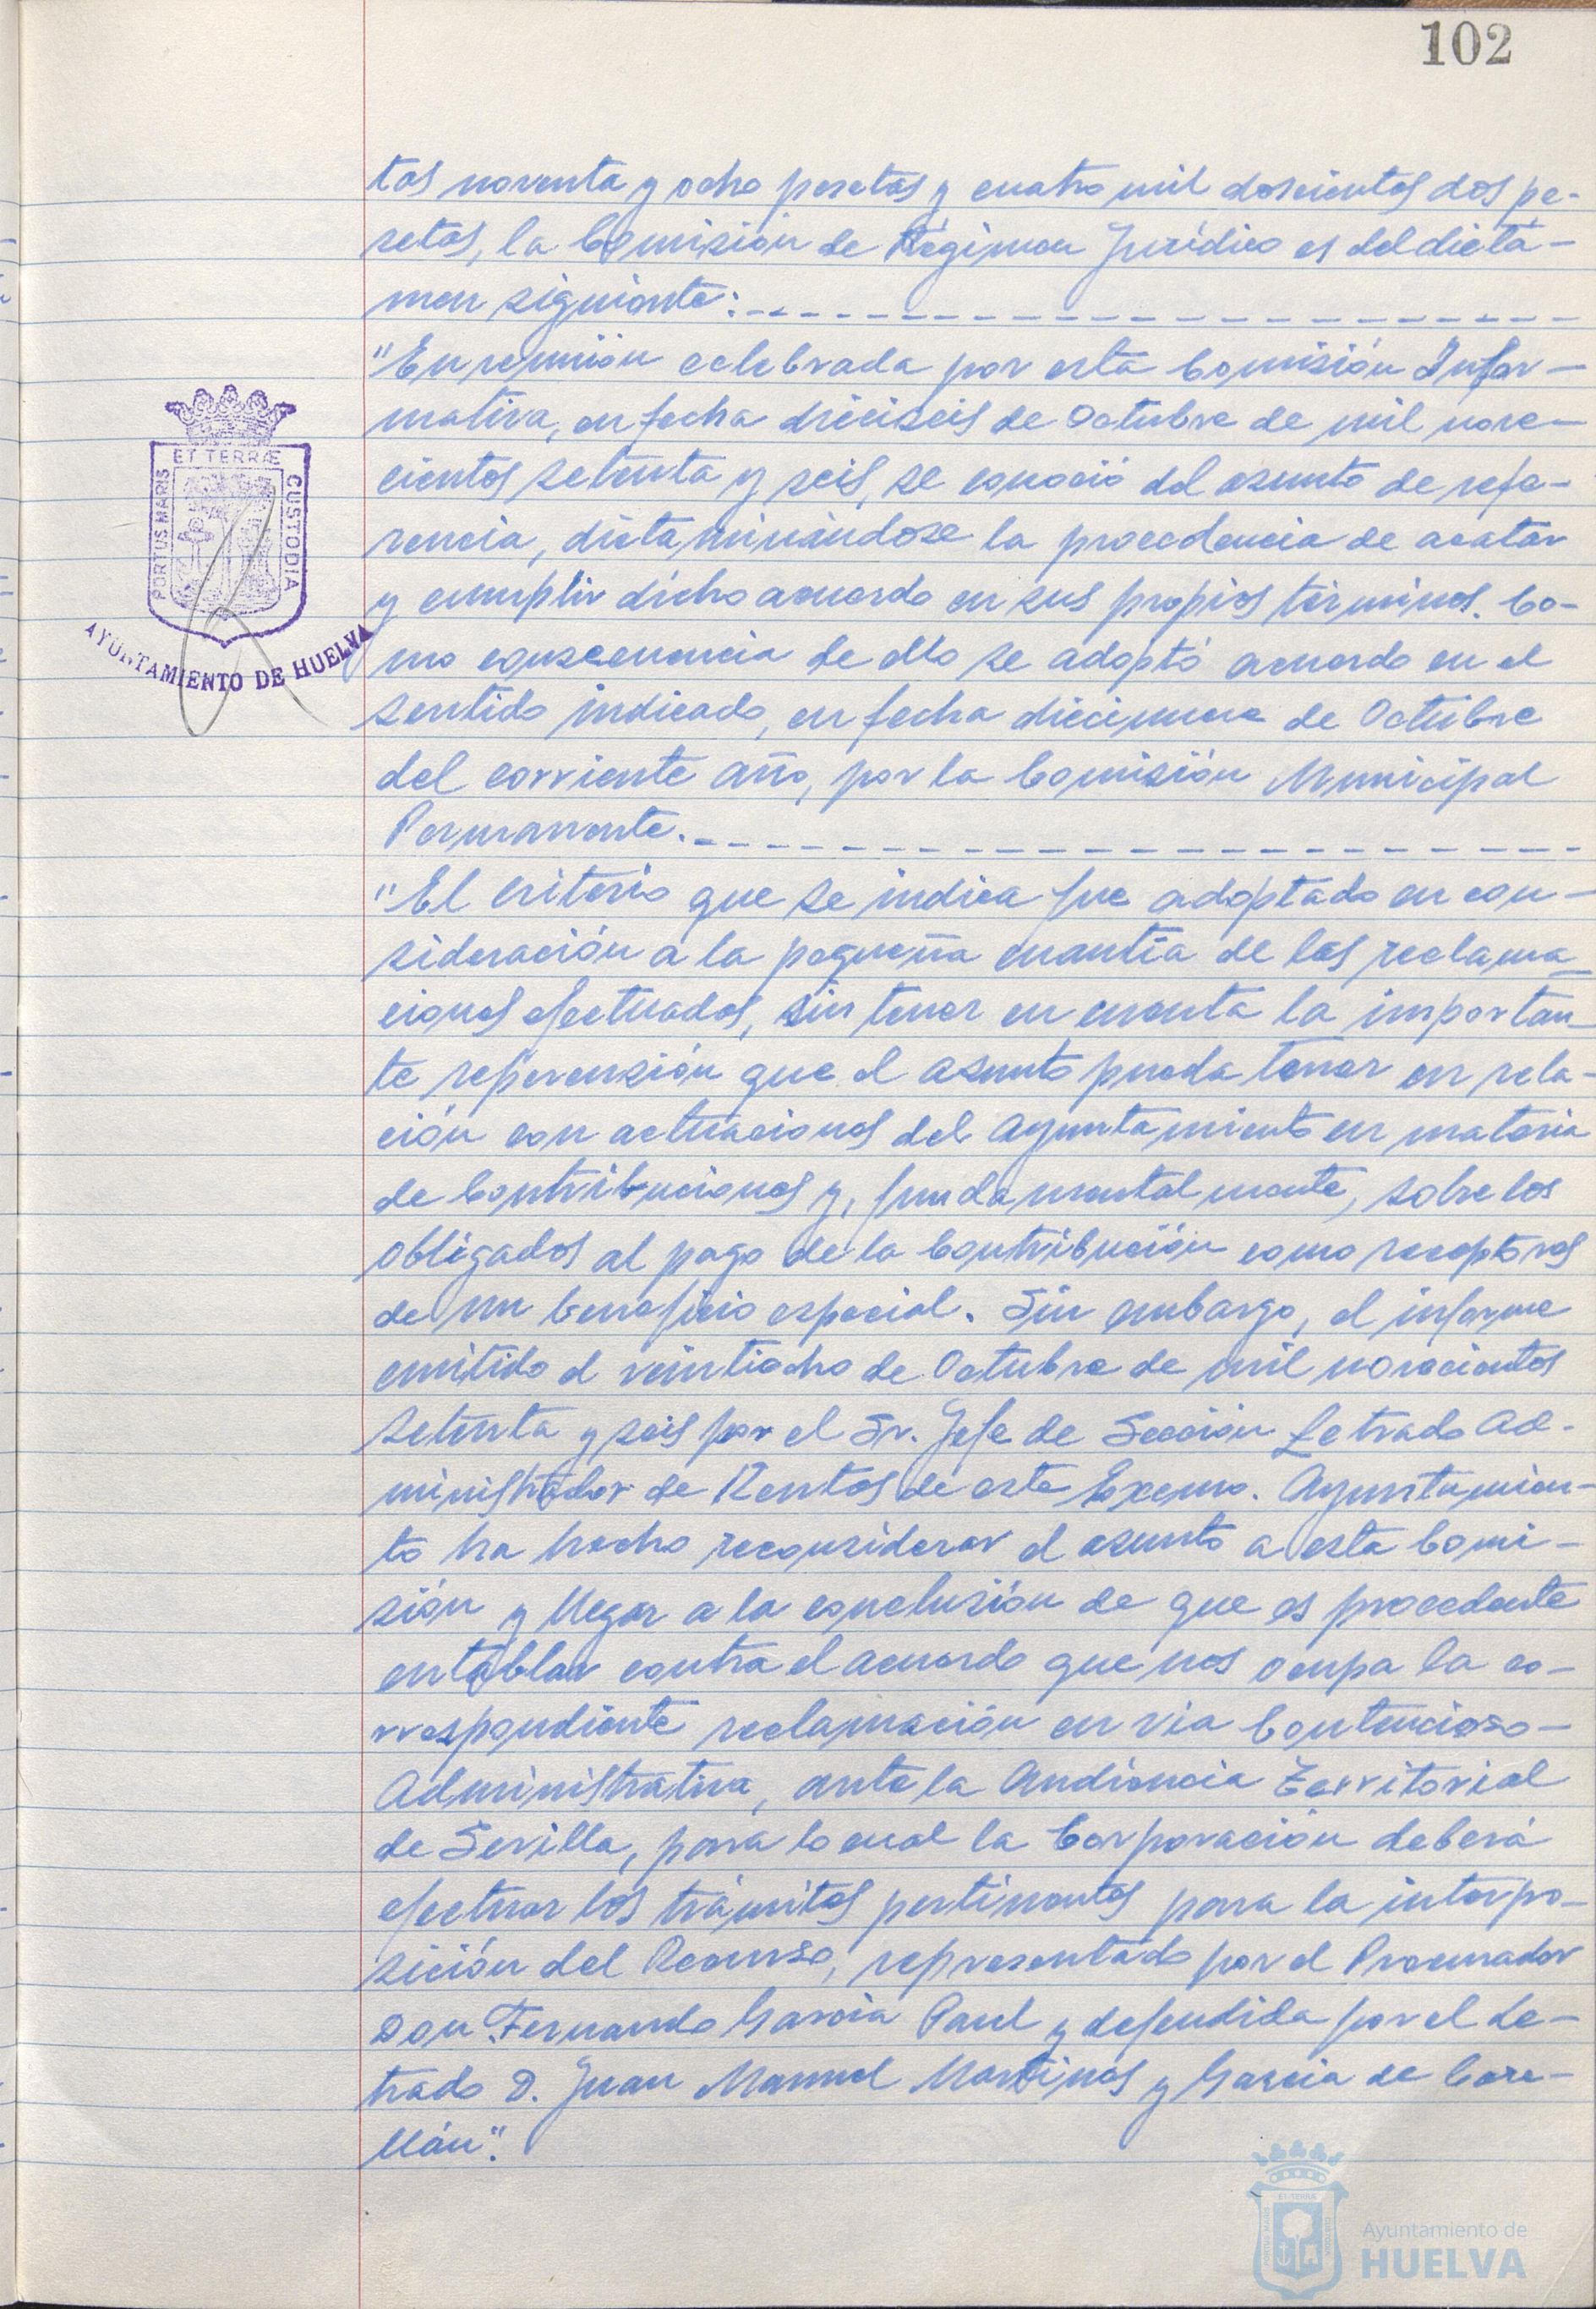 102
tas noventa y ocho pesetas y cuatro mil doscientas dos pe-
setas, la Comisión de Régimen Jurídico es del dictá-
men siguiente:
"En reunión celebrada por esta Comisión Infor-
mativa, en fecha dieciseis de Octubre de mil nove-
cientos setenta y seis, se conoció del asunto de refe-
rencia, dictaminándose la procedencia de acatar
y cumplir dicho acuerdo en sus propios términos. Co-
mo consecuencia de ello se adoptó acuerdo en el
sentido indicado, en fecha diecinueve de Octubre
del corriente año, por la Comisión Municipal
Permanente.
"El criterio que se indica fue adoptado en con-
sideración a la pequeña cuantía de las reclama-
ciones efectuadas, sin tener en cuenta la importan-
te repercusión que el asunto pueda tener en rela-
ción con actuaciones del Ayuntamiento en materia
de Contribuciones y, fundamentalmente, sobre los
obligados al pago de la Contribución como receptores
de un beneficio especial. Sin embargo, el informe
emitido el veintiocho de Octubre de mil novecientos
setenta y seis por el Sr. Jefe de Sección Letrado Ad-
ministrador de Rentas de este Excmo. Ayuntamien-
to ha hecho reconsiderar el asunto a esta Comi-
sión y llegar a la conclusión de que es procedente
entablar contra el acuerdo que nos ocupa la co-
rrespondiente reclamación en vía Contencioso-
Administrativa, ante la Audiencia Territorial
de Sevilla, para lo cual la Corporación deberá
efectuar los trámites pertinentes para la interpo-
sición del Recurso, representado por el Procurador
Don Fernando García Paul y defendida por el Le-
trado D. Juan Manuel Martínes y García de Care-
llán".
PORTUS MARIS
ET TERRÆ
CUSTODIA
AYUNTAMIENTO DE HUELVA
Ayuntamiento de
HUELVA